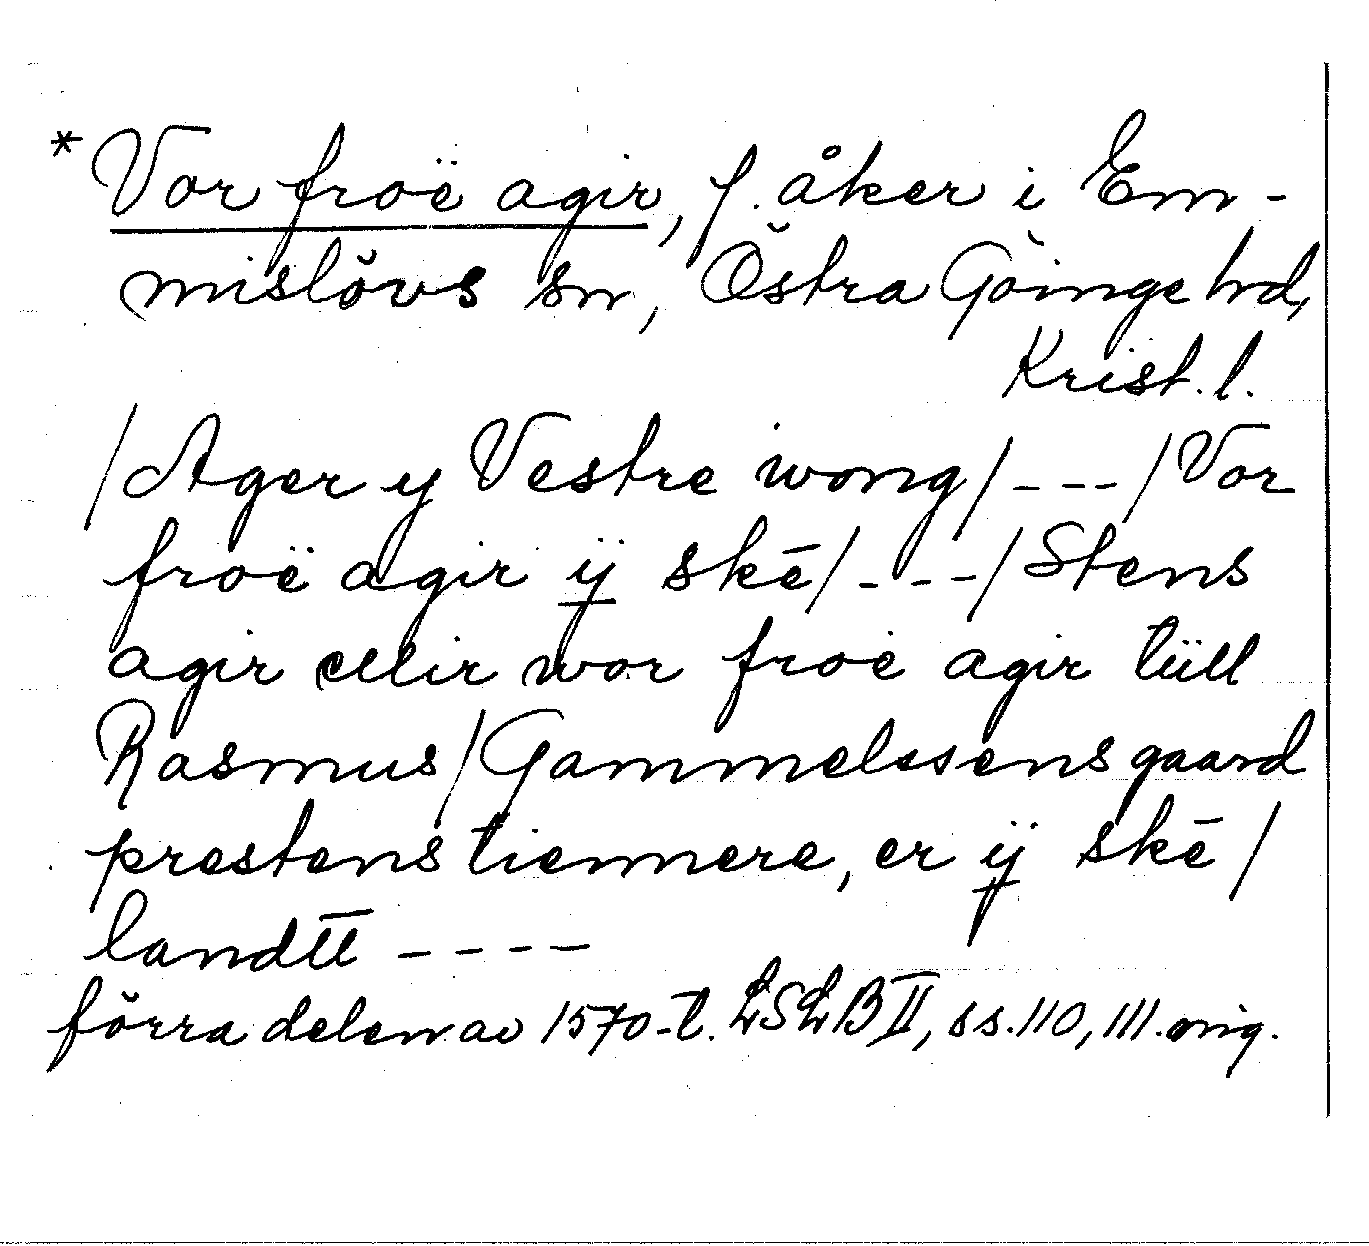 * Vor froë agir, f. åker i Em-
mislövs sn, Östra Göinge hd,
Krist. l.
/Ager y Vestre wong/---/Vor
froë agir ÿ skē/---/Stens
agir ellir wor froë agir tüll
Rasmus/Gammelssens gaard
prestens tiennere, er ÿ skē/
landtt ----
förra delen av 1570-t. LSLB II, ss. 110, 111. orig.